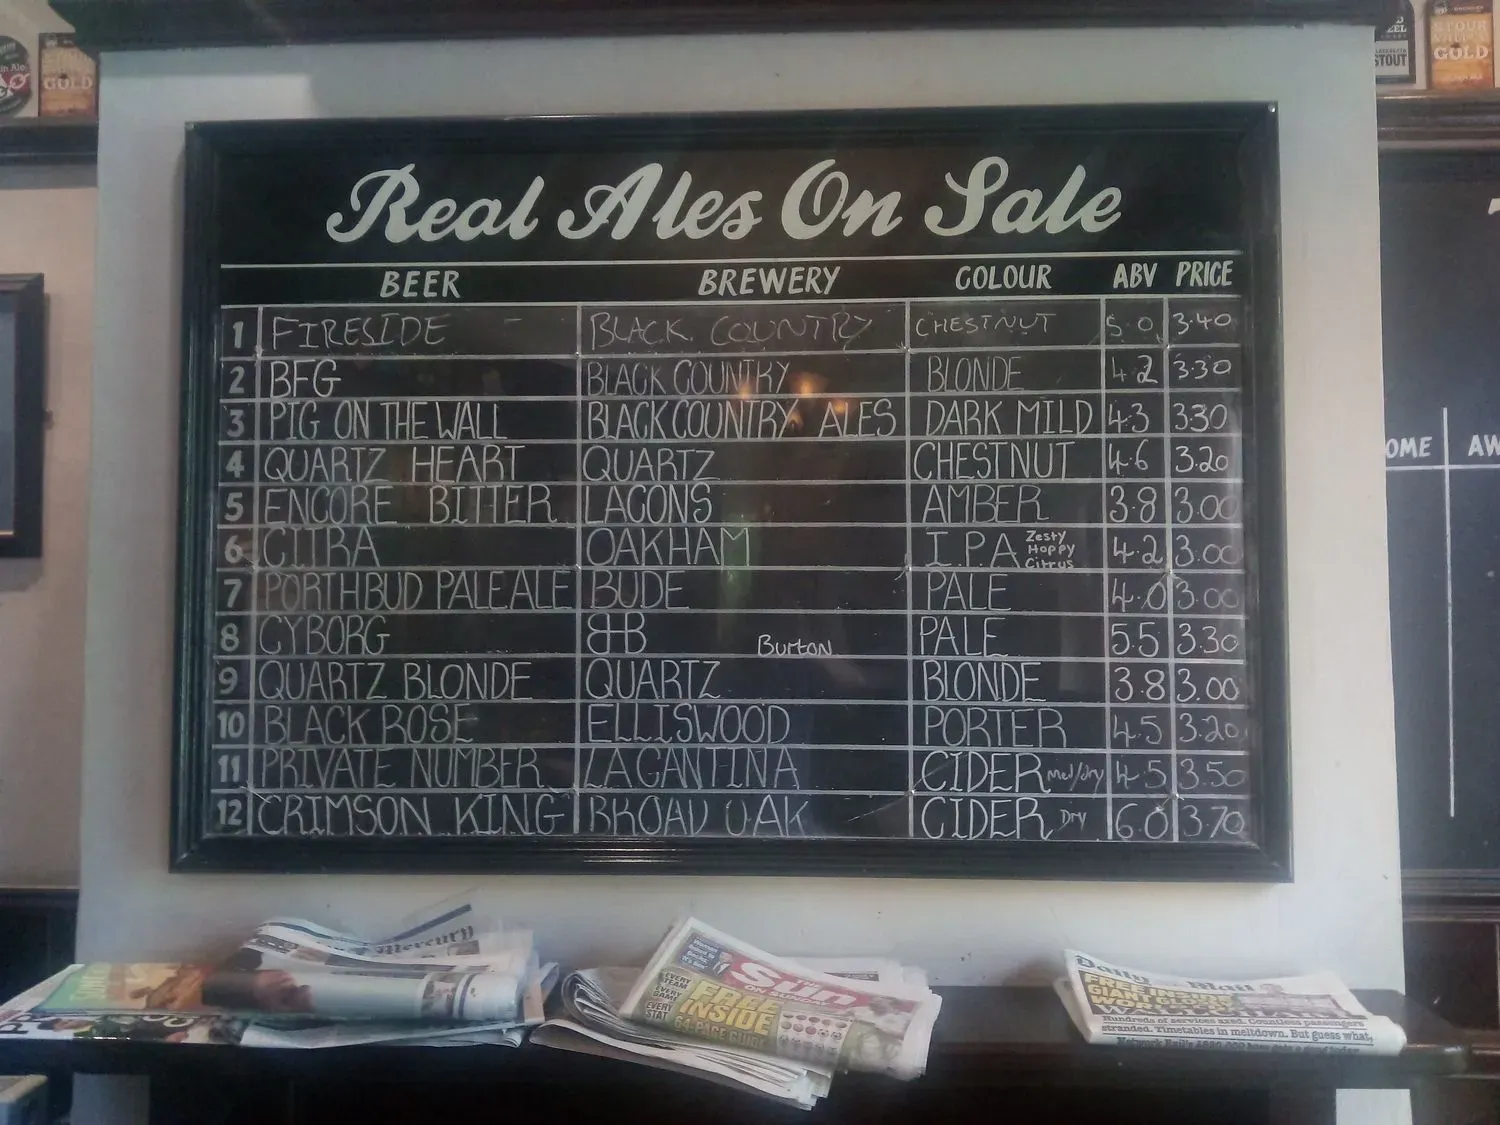 GOLD
STOUT
GOLD
Real Ales On Sale
BEER BREWERY COLOUR ABV PRICE
1 FIRESIDE BLACK COUNTRY CHESTNUT 5.0 3.40
2 BFG BLACK COUNTRY BLONDE 4.2 3.30
3 PIG ON THE WALL BLACK COUNTRY ALES DARK MILD 4.3 3.30
4 QUARTZ HEART QUARTZ CHESTNUT 4.6 3.20
5 ENCORE BITTER LACONS AMBER 3.8 3.00
6 CITRA OAKHAM I.P.A Zesty Hoppy Citrus 4.2 3.00
7 PORTHBUD PALE ALE BUDE PALE 4.0 3.00
8 CYBORG BHB Burton PALE 5.5 3.30
9 QUARTZ BLONDE QUARTZ BLONDE 3.8 3.00
10 BLACK ROSE ELLISWOOD PORTER 4.5 3.20
11 PRIVATE NUMBER LAGANTINA CIDER Med/dry 4.5 3.50
12 CRIMSON KING BROAD OAK CIDER Dry 6.0 3.70
OME AW
Mercury
THE Sun
EVERY TEAM
EVERY GAME
EVERY STAT
FREE INSIDE
64-PAGE GUIDE
Daily Mail
FREE
GIANT
Hundreds of services axed. Countless passengers
stranded. Timetables in meltdown. But guess what,